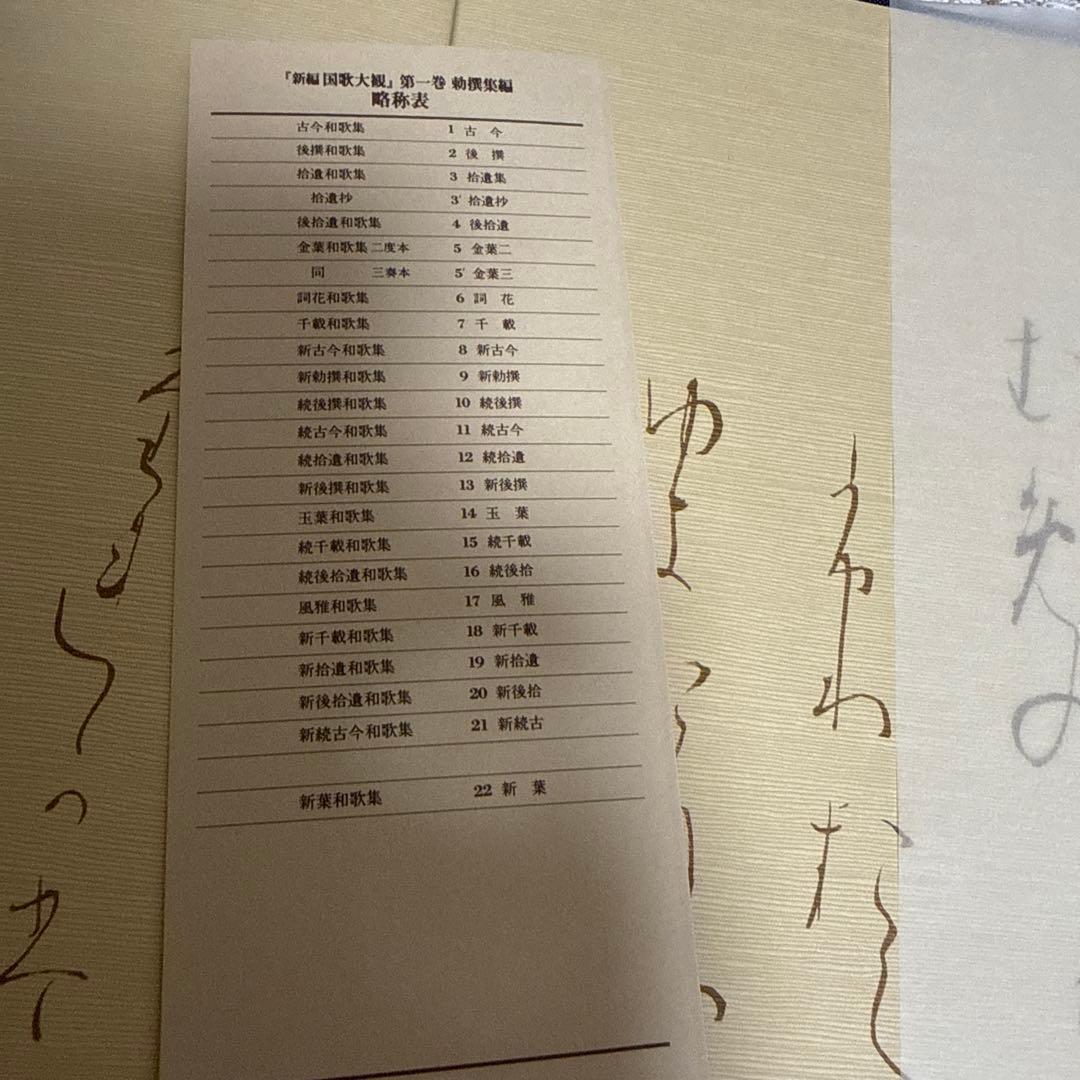 『新編国歌大観』第一巻 勅撰集編
略称表
古今和歌集 1 古 今
後撰和歌集 2 後 撰
拾遺和歌集 3 拾遺集
拾遺抄 3' 拾遺抄
後拾遺和歌集 4 後拾遺
金葉和歌集 二度本 5 金葉二
同 三奏本 5' 金葉三
詞花和歌集 6 詞 花
千載和歌集 7 千 載
新古今和歌集 8 新古今
新勅撰和歌集 9 新勅撰
続後撰和歌集 10 続後撰
続古今和歌集 11 続古今
続拾遺和歌集 12 続拾遺
新後撰和歌集 13 新後撰
玉葉和歌集 14 玉 葉
続千載和歌集 15 続千載
続後拾遺和歌集 16 続後拾
風雅和歌集 17 風 雅
新千載和歌集 18 新千載
新拾遺和歌集 19 新拾遺
新後拾遺和歌集 20 新後拾
新続古今和歌集 21 新続古
新葉和歌集 22 新 葉